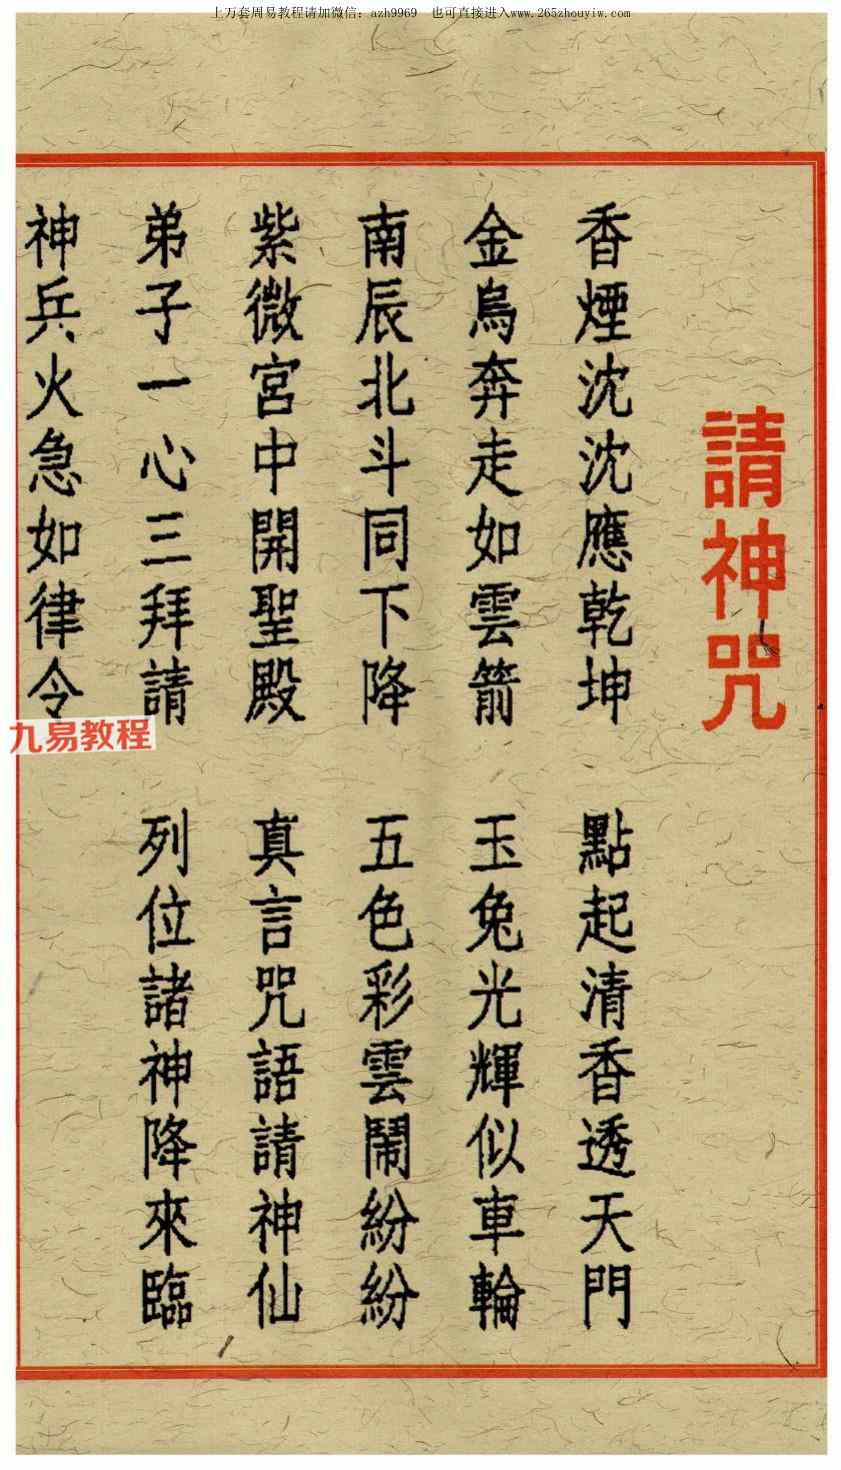 上万套周易教程请加微信：azh9969 也可直接进入www.265zhouyiw.com
請神咒
香煙沈沈應乾坤 點起清香透天門
金烏奔走如雲箭 玉兔光輝似車輪
南辰北斗同下降 五色彩雲鬧紛紛
紫微宮中開聖殿 真言咒語請神仙
弟子一心三拜請 列位諸神降來臨
神兵火急如律令
九易教程